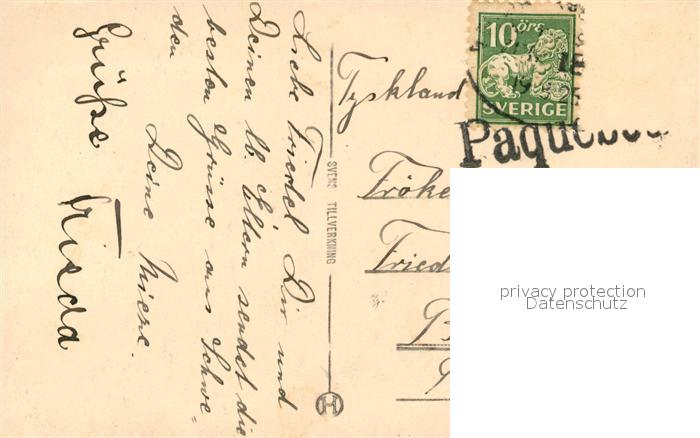 Liebe Friedel Dir und
Deinen lb. Eltern sendet die
besten Grüsse aus Schwe-
den
Deine Miene.
Grüße Frieda
SVENSK TILLVERKNING
H
10 öre
SVERIGE
Paquebot
Tyskland
Fröke
Fried
B
privacy protection
Datenschutz